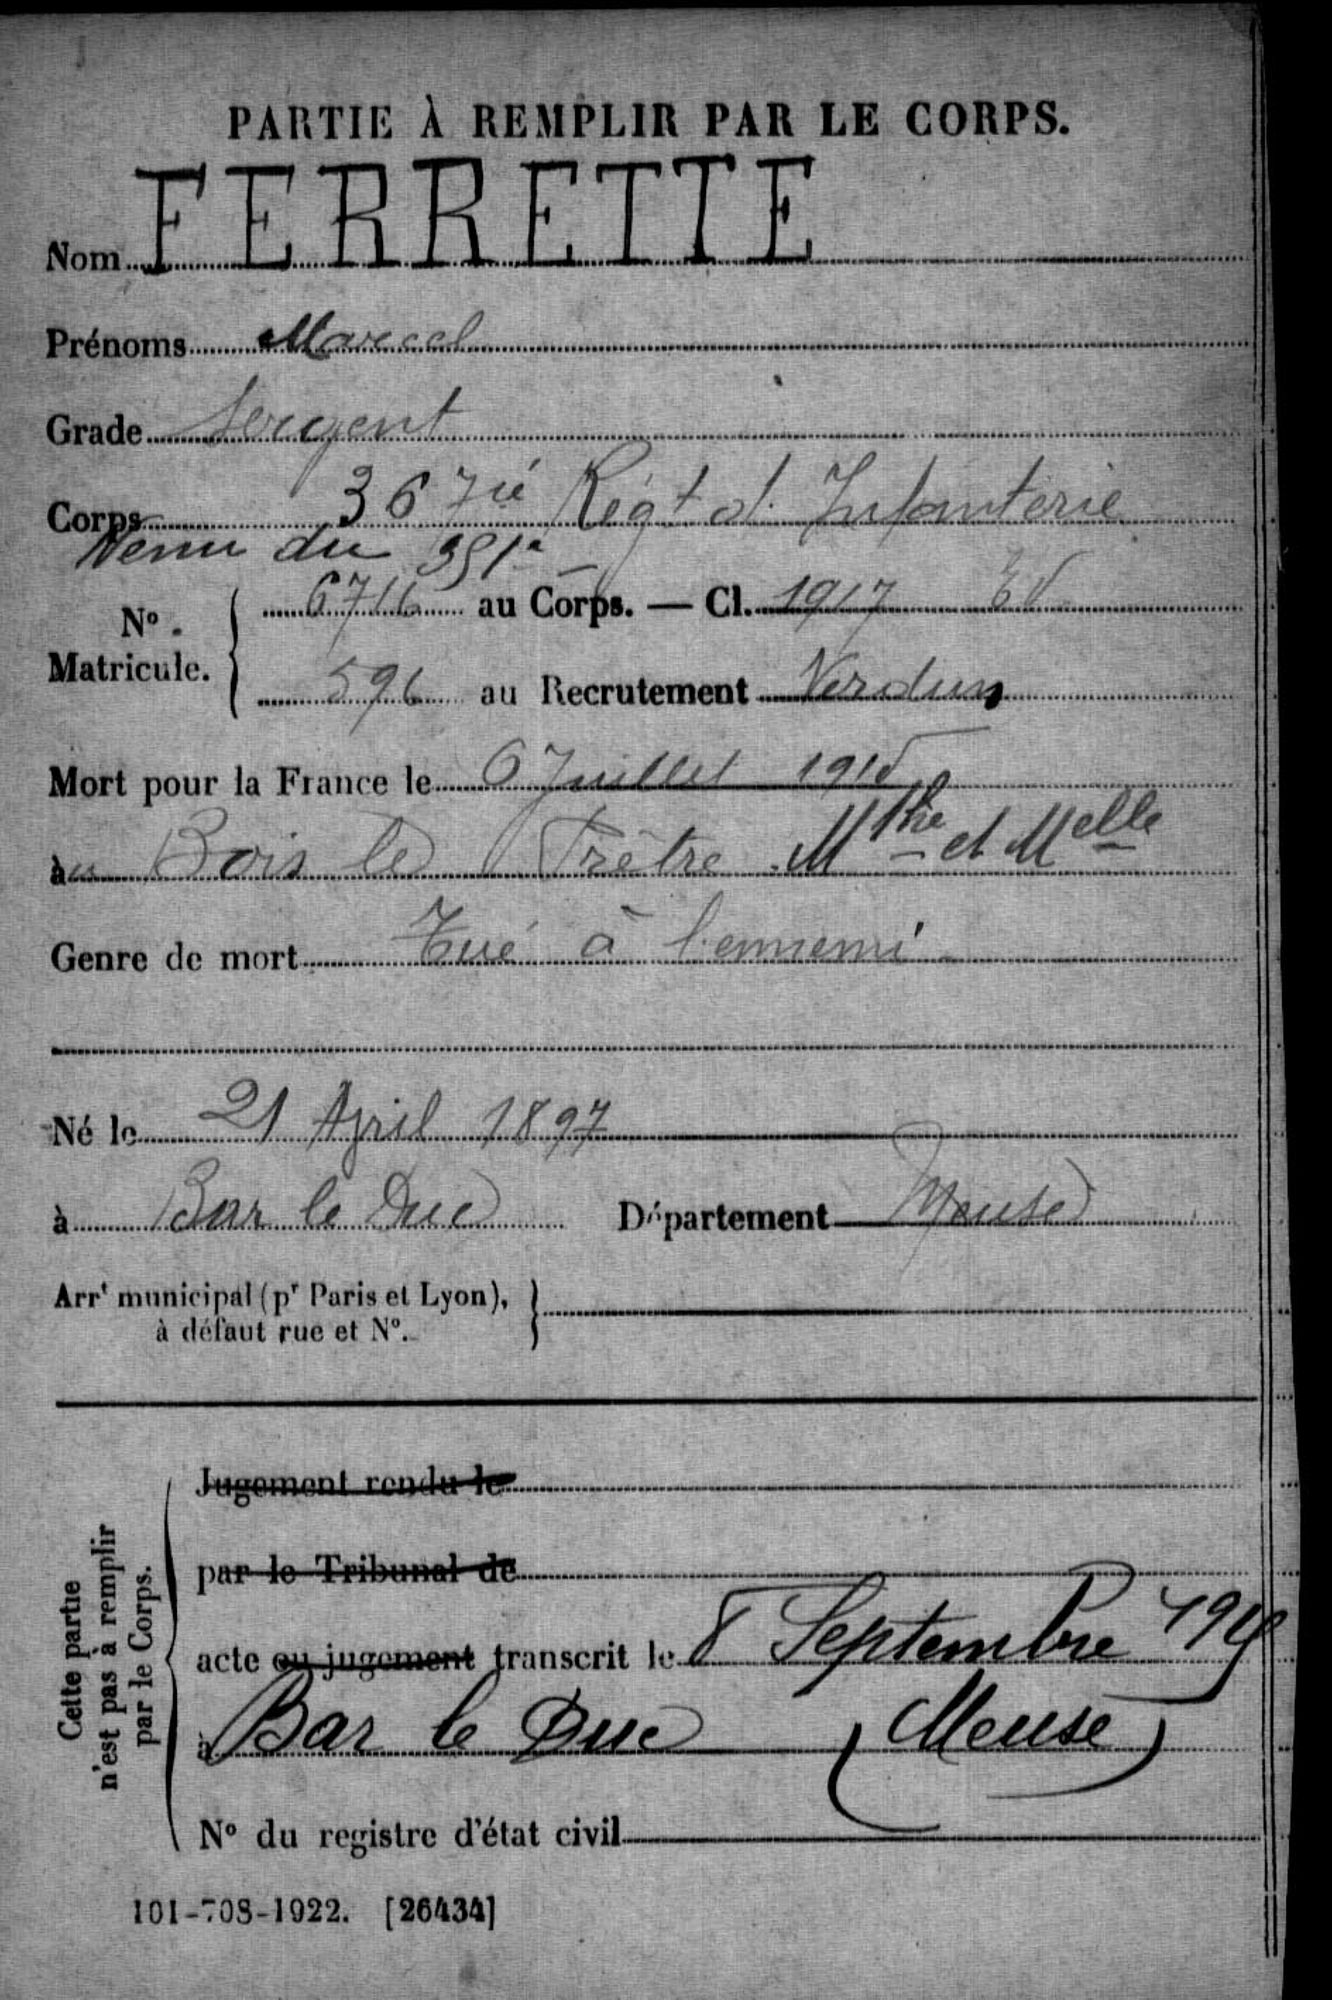 PARTIE À REMPLIR PAR LE CORPS.
Nom FERRETTE
Prénoms Marcel
Grade Sergent
Corps 367ié Régt d'Infanterie
Venu du 351e
No. Matricule. 6716 au Corps. — Cl. 1917 EV
596 au Recrutement Verdun
Mort pour la France le 6 Juillet 1915
au Bois le Prêtre Mthe et Melle
Genre de mort Tué à l'ennemi
Né le 21 April 1897
à Bar le Duc Département Meuse
Arrt municipal (pr Paris et Lyon),
à défaut rue et No.
Cette partie n'est pas à remplir par le Corps.
Jugement rendu le
par le Tribunal de
acte ou jugement transcrit le 8 Septembre
à Bar le Duc (Meuse)
No du registre d'état civil
101-708-1922. [26434]